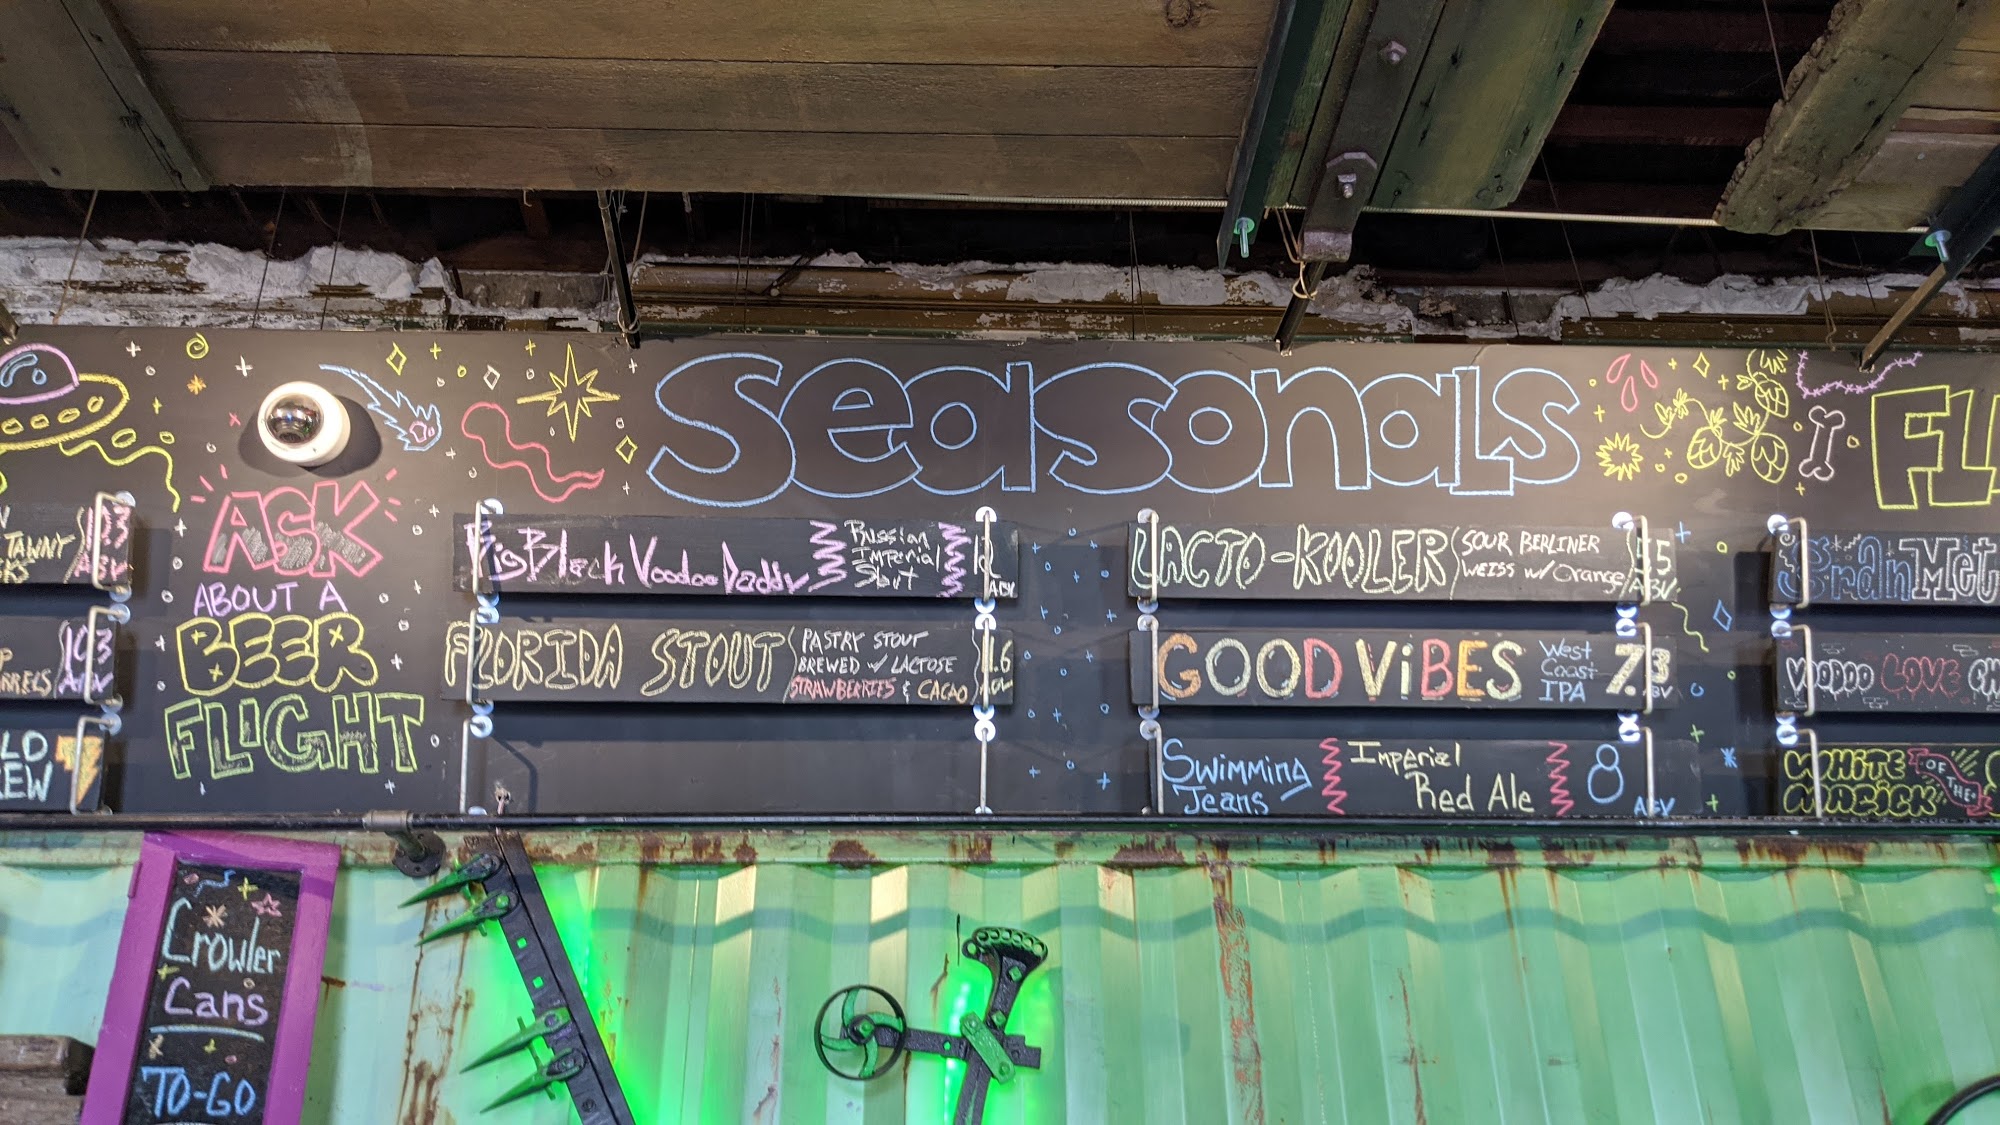 Seasonals
FL
TAWNY
10.3
ABV
ASK
ABOUT A
BEER
FLIGHT
10.3
ABV
RRELS
LD
REW
Big Black Voodoo Daddy
Russian
Imperial
Stout
12
ABV
FLORIDA STOUT
PASTRY STOUT
BREWED W/ LACTOSE
STRAWBERRIES & CACAO
.6
LACTO-KOOLER
SOUR BERLINER
WEISS W/ Orange
5.5
ABV
GOOD ViBES
West
Coast
IPA
7.3
ABV
Swimming
Jeans
Imperial
Red Ale
8
ABV
Gran Met
VOODOO LOVE
WHiTE
MAGICK
OF THE
Crowler
Cans
TO-GO